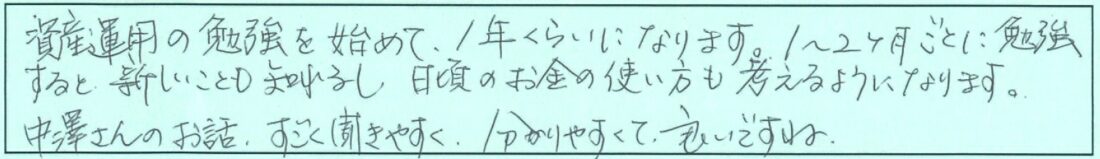 資産運用の勉強を始めて、1年くらいになります。1～2ヶ月ごとに勉強
すると新しいことも知れるし、日頃のお金の使い方も考えるようになります。
中澤さんのお話、すごく聞きやすく、分かりやすくて、良いですね。